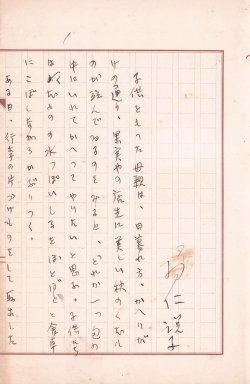 子供をもつた母親は、日暮れ方、かへりが
けの通り、果実やの店先に美しい秋のくだも
のが並んでゐるのをみると、どれか一つ包の
中にいれてかへつてやりたいと思ふ。子供たち
はくだものの水つぽいしるをぽとぽとと食卓
にこぼしながらかぶりつく。
ある日、行李の片づけものをして取出した